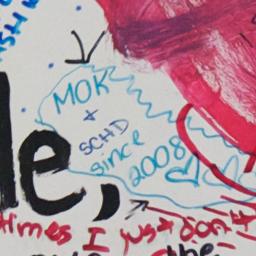 MOK
+
SCHD
since
2008
le,
times I just don't
the